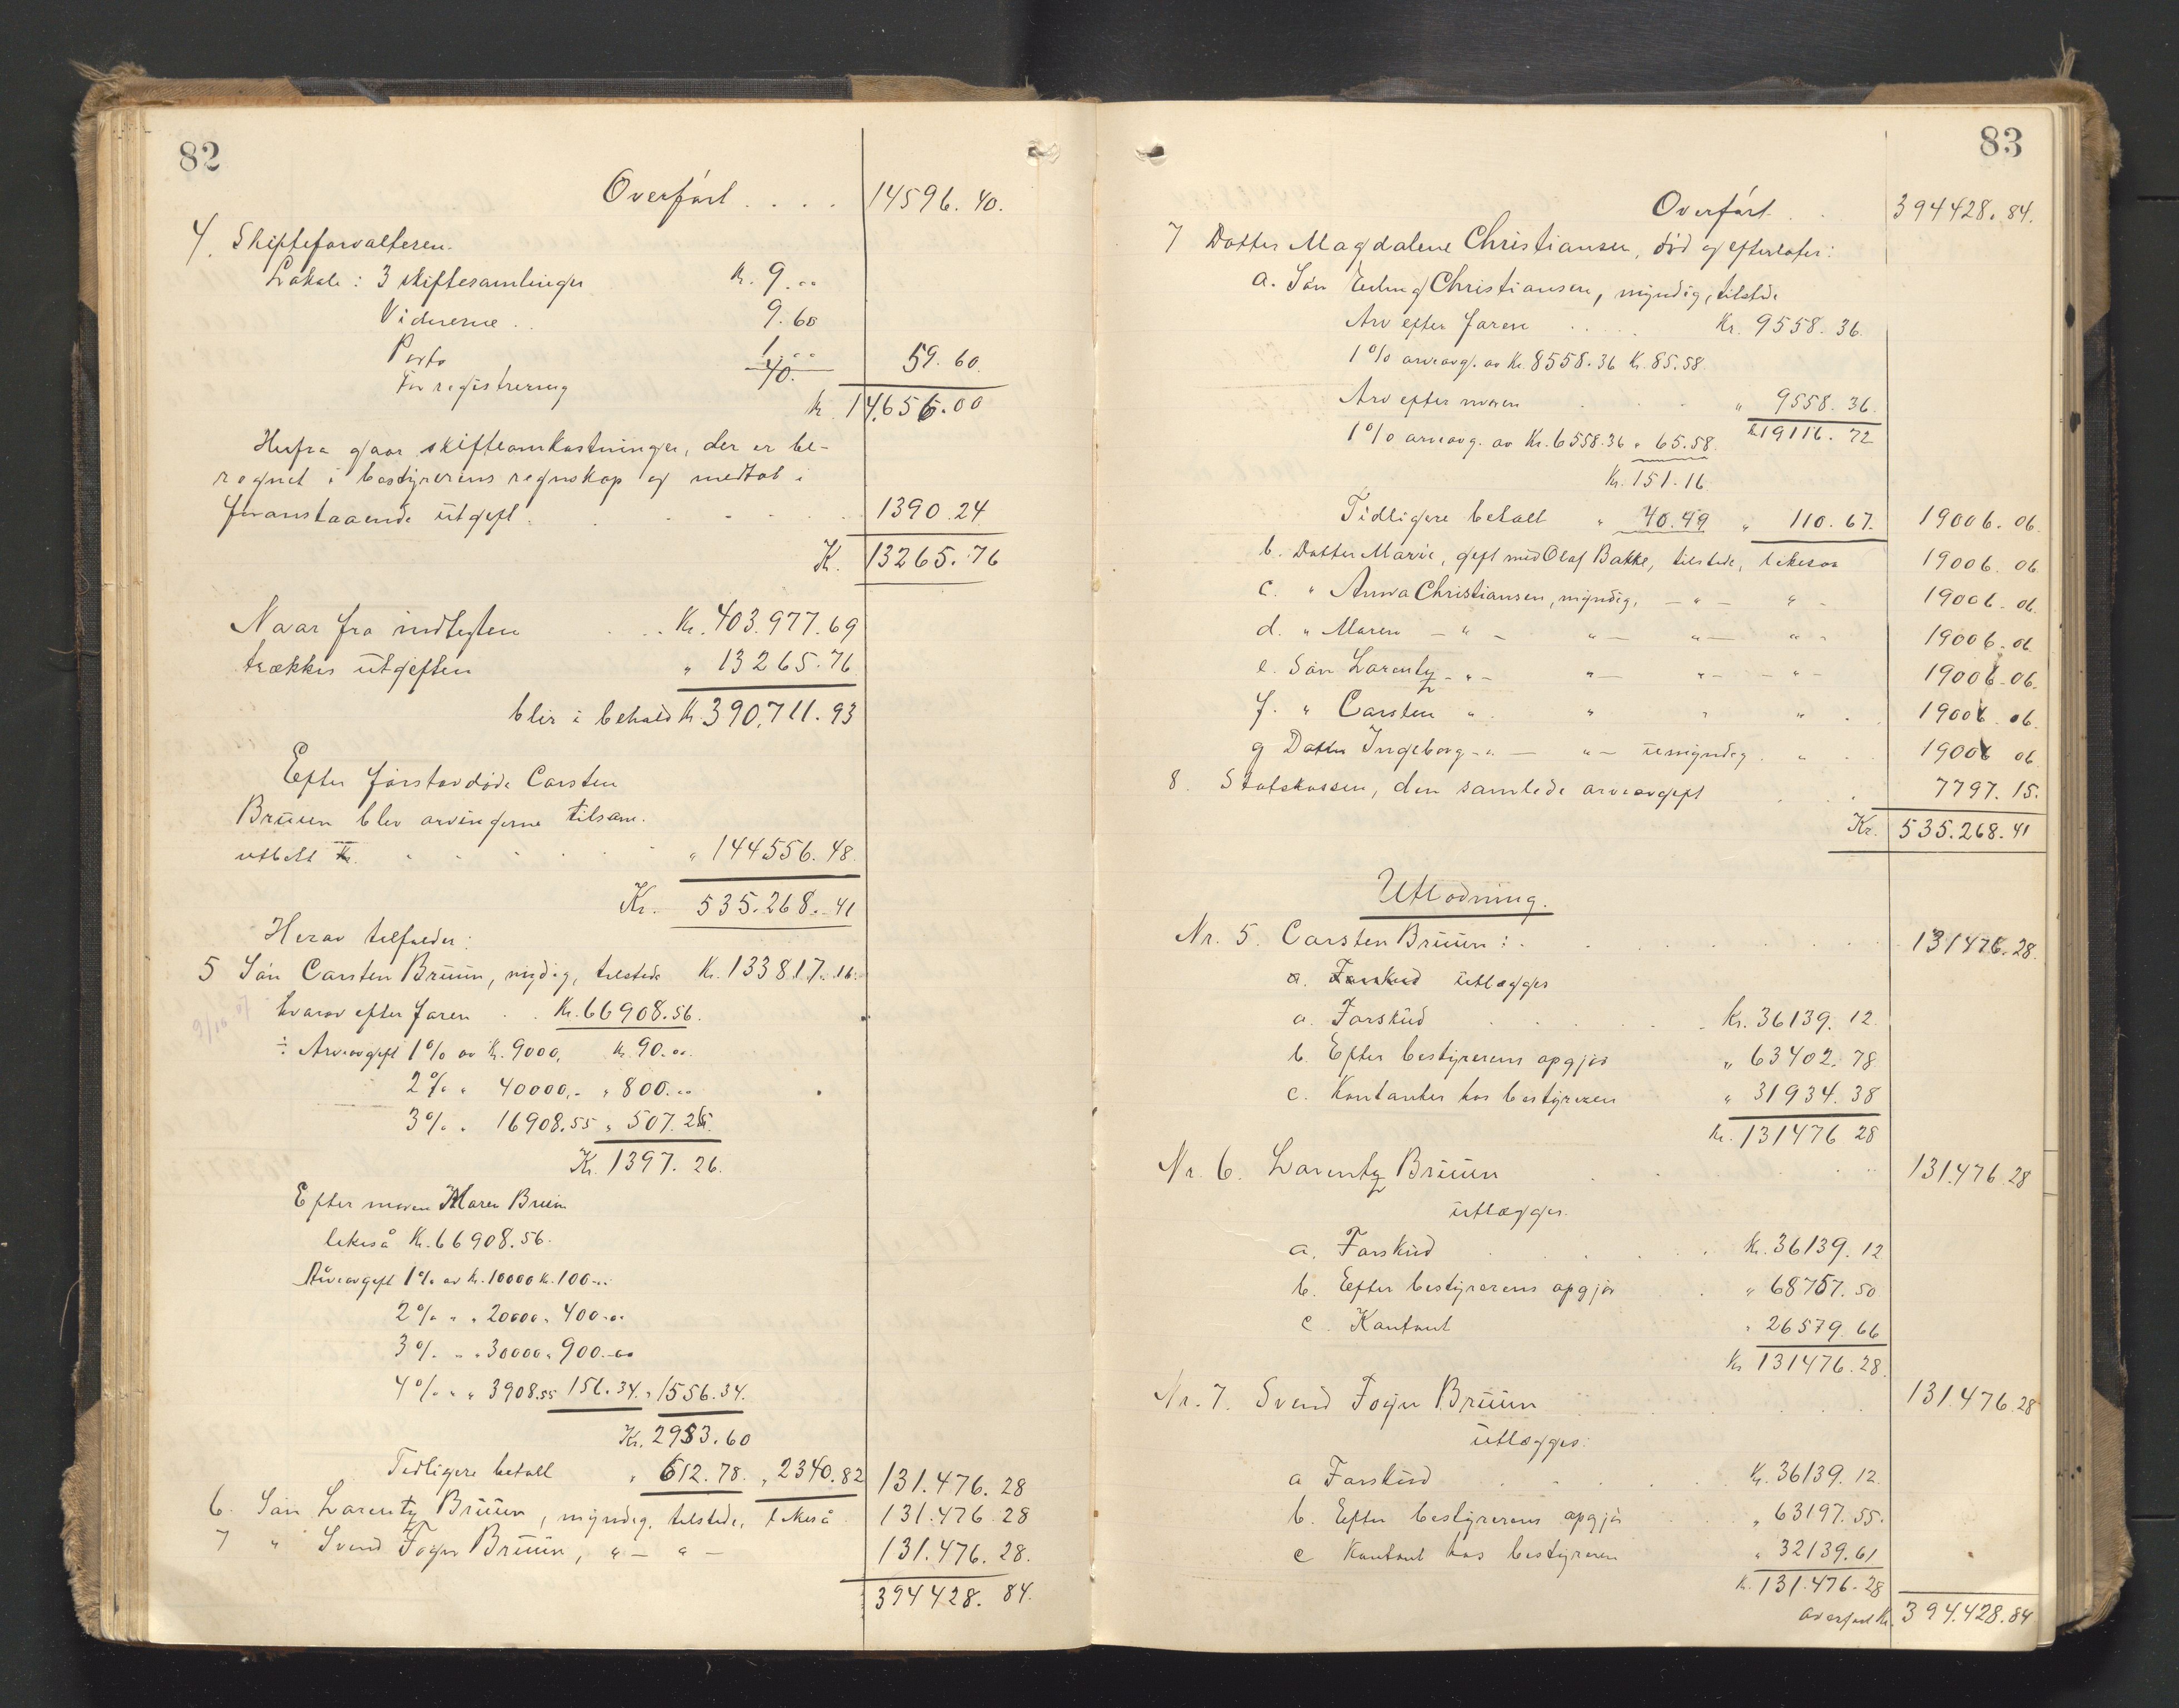 82
Overført . . . . 14596. 40.
4. Skifteforvalteren.
Lokale: 3 skiftesamlinger Kr. 9.00
Vidnerne . . 9.60
Porto 1.00
For registrering 40. 59. 60.
Kr. 14.656.00
Herfra gaar skifteomkostninger, der er be-
regnet i bestyrerens regnskap og medtat i
foranstaaende utgift . . . . . 1390.24
K. 13265.76
Naar fra indtegten . . Kr. 403.977.69
trækkes utgiften " 13265.76
blir i behold Kr. 390.711.93
Efter førstavdøde Carsten
Bruun blev arvingerne tilsam.
utbetalt Kr. . . . . . " 144556.48.
Kr. 535.268.41
Herav tilfalder:
5 Søn Carsten Bruun, myndig, tilstede Kr. 133817.16.
hvorav efter faren . . Kr. 66908.56.
÷ Arveavgift 1% av Kr. 9000, Kr. 90.00
2% " 40000,- " 800.00
3% " 16908.55 " 507.26.
Kr. 1397.26.
Efter moren Maren Bruun
likeså Kr. 66908.56.
Arveavgift 1% av Kr. 10000 Kr. 100.00
2% " " 20000 " 400.00
3% " " 30000 " 900.00
4% " " 3908.55 156.34. " 1556.34.
Kr. 2953.60
Tidligere betalt " 612.78. " 2340.82 131.476.28
6. Søn Larentz Bruun, myndig, tilstede, likeså . 131.476.28
7 " Svend Foyn Bruun, " — " — 131.476.28.
394428.84.
83
Overført . . 394428.84.
7 Datter Magdalene Christiansen, død og efterlater:
a. Søn Erling Christiansen, myndig, tilstede
Arv efter faren . . . . . Kr. 9558.36.
1% arveavg. av Kr. 8558.36 Kr. 85.58.
Arv efter moren . . . " 9558.36.
1% arveavg. av Kr. 6558.36 " 65.58. Kr. 19116.72
Kr. 151.16
Tidligere betalt " 40.49 " 110.67. 19006.06.
b. Datter Marie, gift med Olaf Bakke, tilstede, likesaa 19006.06
c. " Anna Christiansen, myndig, — " — " - 19006.06.
d. " Maren — " — " — " — " - 19006.06.
e. Søn Larentz - " - " — " - - " - 19006.06.
f. " Carsten " . " " " . . 19006.06.
g Datter Ingeborg - " — " — umyndig . " . 19006 06
8. Statskassen, den samlede arveavgift . . 7797.15.
Kr. 535.268.41
Utlodning.
Nr. 5. Carsten Bruun: . . . . . . . . 131476.28.
a. Forskud utlægges
a. Forskud . . . . . Kr. 36139.12.
b. Efter bestyrerens opgjør " 63402.78
c. Kontanter hos bestyreren " 31934.38
Kr. 131476 28
Nr. 6. Larentz Bruun . . . . 131.476.28
utlægges.
a. Forskud . . . . . Kr. 36139.12
b. Efter bestyrerens opgjør . . " 68757.50
c. Kontant " 26579.66
Kr 131476.28.
Nr. 7. Svend Foyn Bruun . . . . 131.476.28
utlægges:
a Forskud . . . . Kr. 36139.12.
b. Efter bestyrerens opgjør . " 63197.55.
c Kontant hos bestyreren " 32139.61
Kr. 131.476.28
overført Kr. 394.428.84